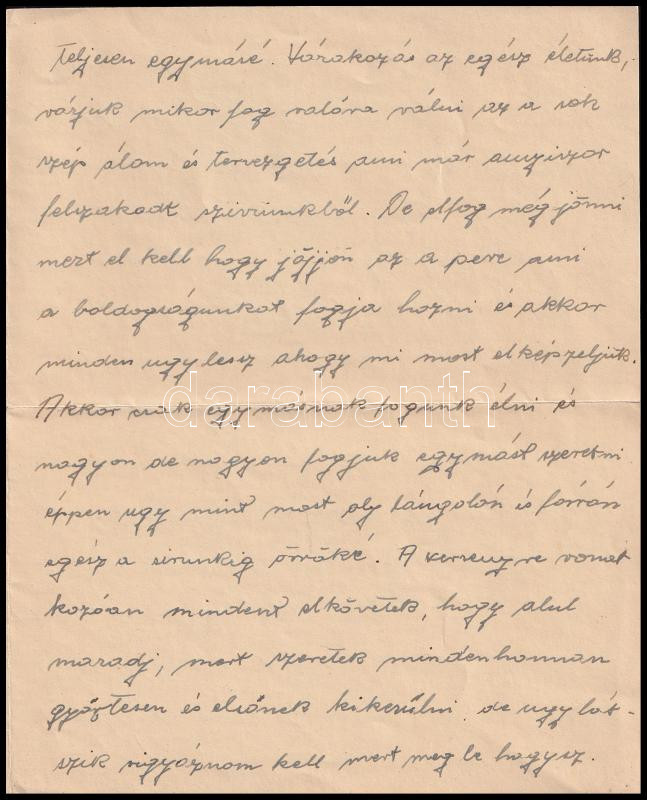 teljesen egymásé. Várakozás az egész életünk,
várjuk mikor fog valóra válni az a sok
szép álom és tervezgetés ami már annyiszor
felszakadt szivünkből. De elfog még jönni
mert el kell hogy jőjjön az a perc ami
a boldogságunkat fogja hozni és akkor
minden ugy lesz ahogy mi most elképzeljük.
Akkor csak egymásnak fogunk élni és
darabanth
nagyon de nagyon fogjuk egymást szeretni
éppen ugy mint most oly lángolón és forrón
egész a sirunkig örröké. A versenyre vonat
kozóan mindent elkövetek, hogy alul
maradj, mert szeretek mindenhonnan
győztesen és elsőnek kikerülni de ugy lát-
szik vigyáznom kell mert meg le hagysz.